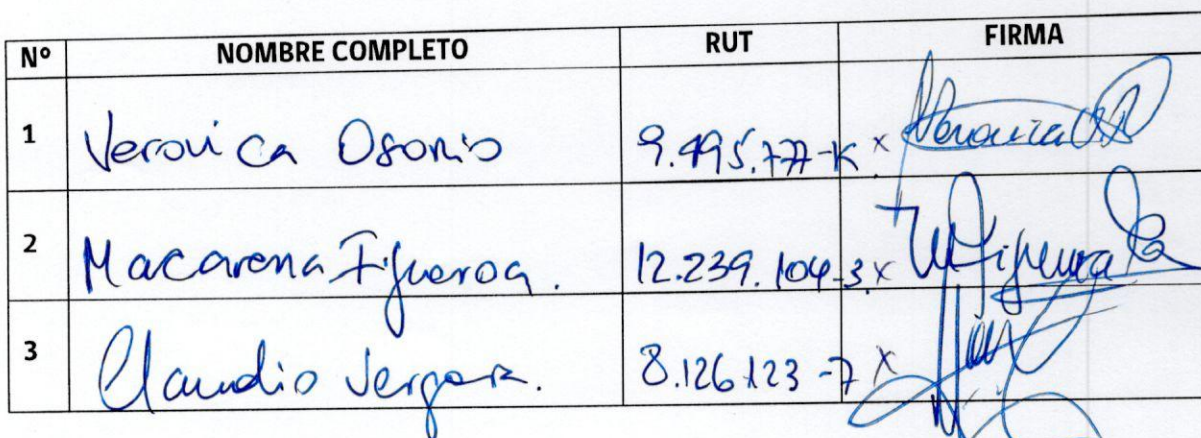 Nº NOMBRE COMPLETO RUT FIRMA
1 Veronica Osorio 9.495.777-K x
2 Macarena Figueroa. 12.239.104-3 x
3 Claudio Vergara. 8.126.123-7 x